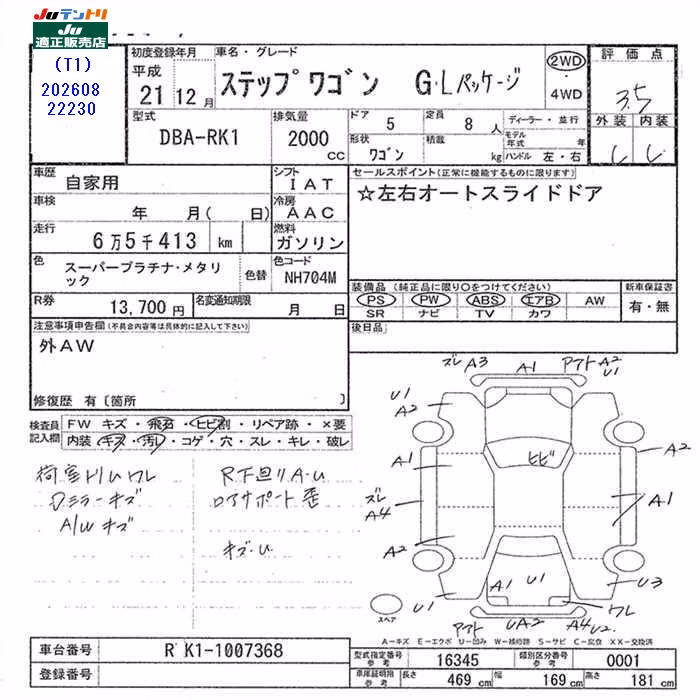 JUテントリ
JU
適正販売店
(T1)
202608
22230
初度登録年月
平成
21 12月
車名・グレード
ステップワゴン G・Lパッケージ
2WD
4WD
評価点
3.5
外装 内装
型式
DBA-RK1
排気量
2000
CC
ドア 5
定員 8人
ディーラー・並行
形状
ワゴン
積載
kg
モデル年式 年
ハンドル 左・右
車歴
自家用
シフト
IAT
車検
年 月( 日)
冷房
AAC
走行
6万5千413 km
燃料
ガソリン
色
スーパープラチナ・メタリック
色替
色コード
NH704M
R券
13,700円
名変通知期限
月 日
セールスポイント(正常に機能するものに限ります)
☆左右オートスライドドア
装備品(純正品に限り○をつけてください)
新車保証書
PS PW ABS エアB AW
SR ナビ TV カワ
有・無
後日品
注意事項申告欄(不具合内容等は具体的に記入して下さい)
外AW
修復歴 有〔箇所 〕
検査員記入欄
FW キズ・飛石・ヒビ割・リペア跡・×要
内装・キズ・汚レ・コゲ・穴・スレ・キレ・破レ
荷室トリムワレ
Dミラーキズ
A/Wキズ
R下廻りA・U
ロアサポート歪
キズ・U
ズレ A3
A1
アフト A2
U1
U1
A2
A1
ズレ
A4
A2
U1
ヒビ
A2
A1
U3
A1
U1
ワレ
アフト
UA2
A4
U2
スペア
A-キズ E-エクボ U-凹み W-補修跡 S-サビ C-腐食 XX-交換済
車台番号
RK1-1007368
登録番号
型式指定番号
参考
16345
類別区分番号
参考
0001
車庫証明指
参考
長さ 469 cm
幅 169 cm
高さ 181 cm